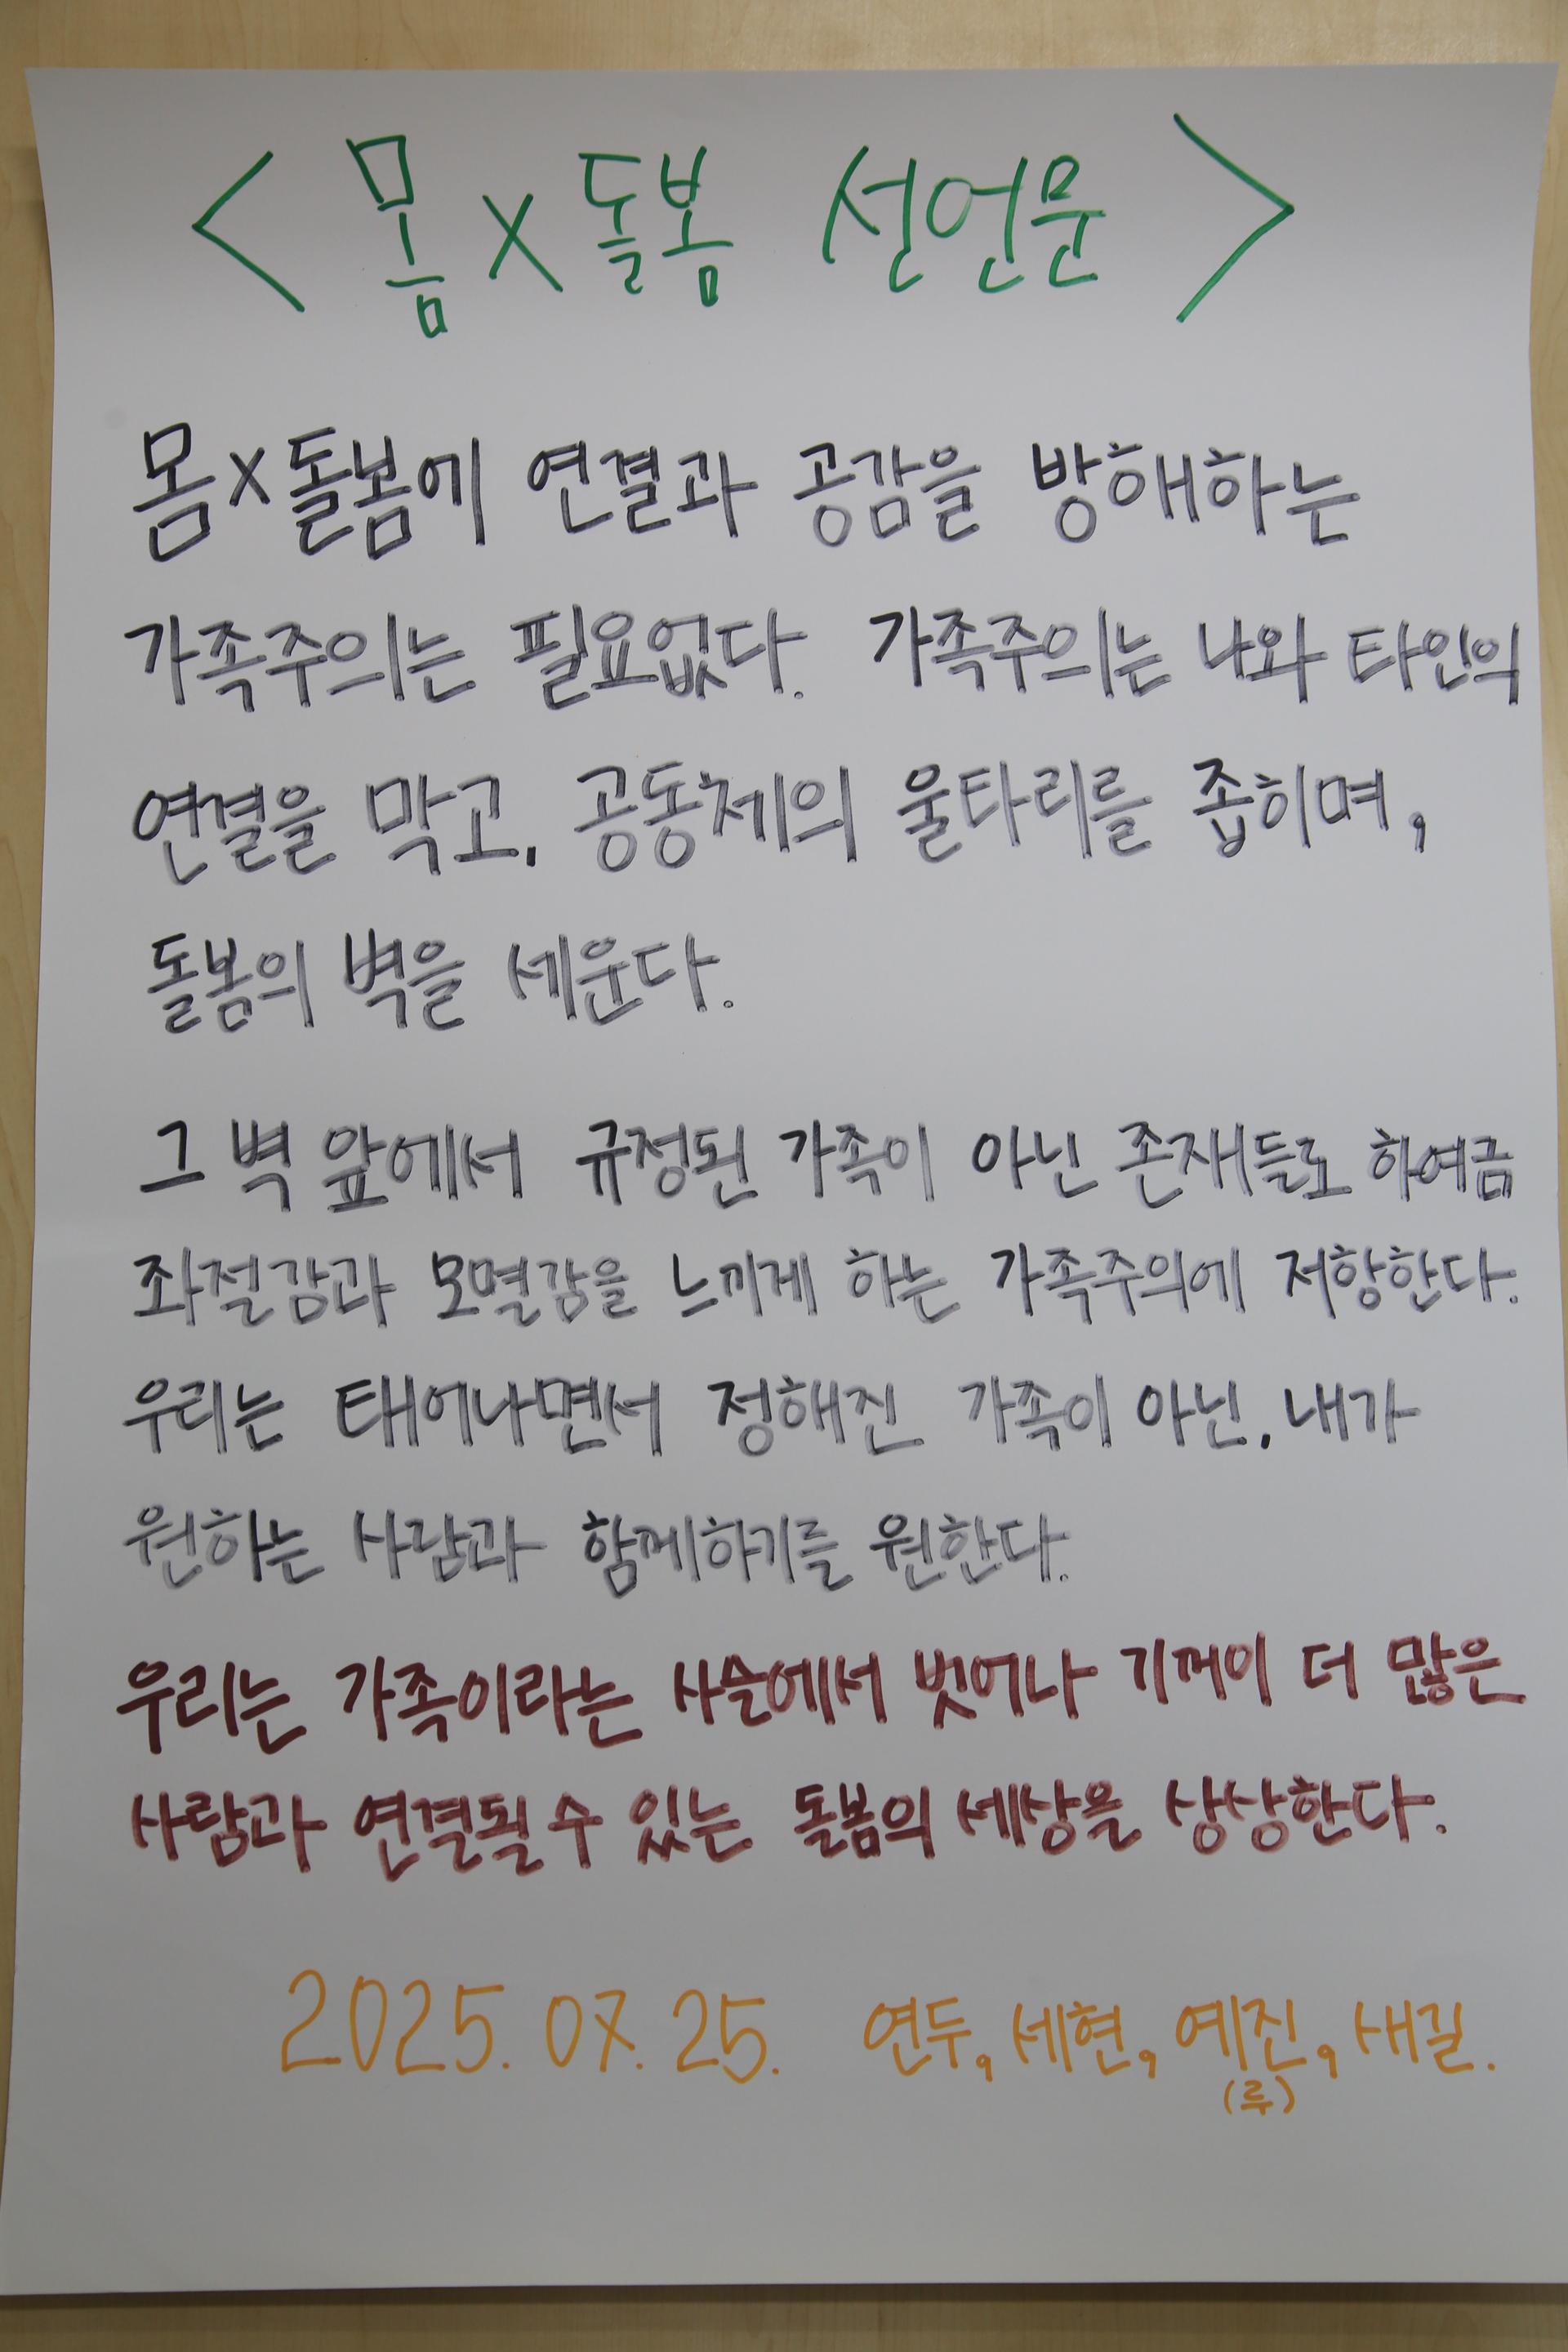 < 몸×돌봄 선언문 >
몸×돌봄에 연결과 공감을 방해하는
가족주의는 필요없다. 가족주의는 나와 타인의
연결을 막고, 공동체의 울타리를 좁히며,
돌봄의 벽을 세운다.
그 벽 앞에서 규정된 가족이 아닌 존재들로 하여금
좌절감과 모멸감을 느끼게 하는 가족주의에 저항한다.
우리는 태어나면서 정해진 가족이 아닌, 내가
원하는 사람과 함께하기를 원한다.
우리는 가족이라는 사슬에서 벗어나 기꺼이 더 많은
사람과 연결될 수 있는 돌봄의 세상을 상상한다.
2025. 07. 25. 연두, 세현, 예진, 새길.
(루)